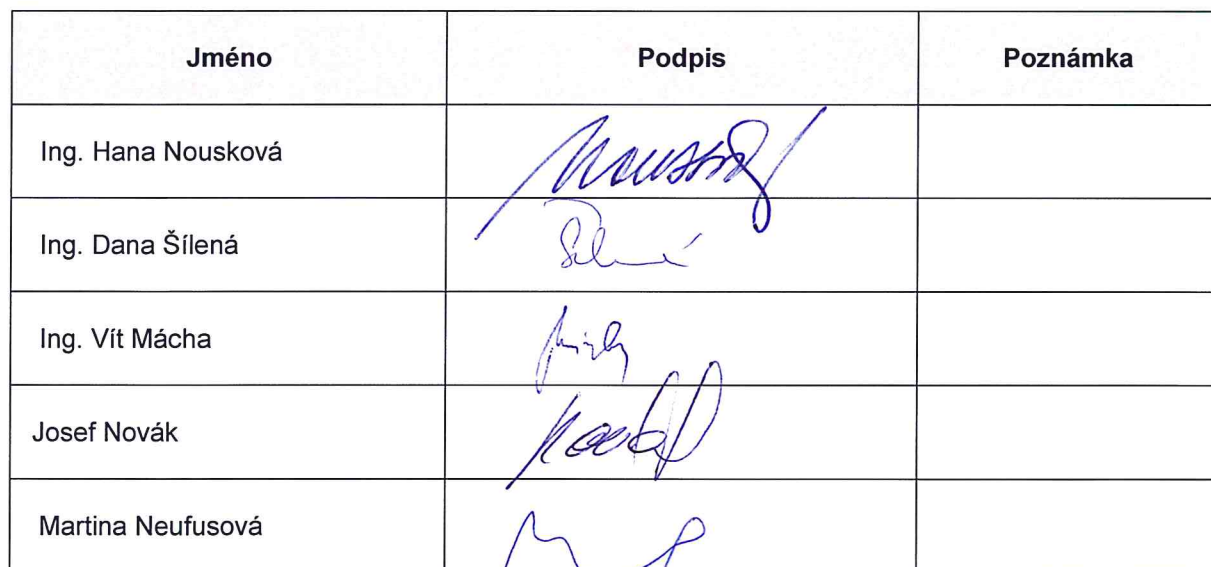 Jméno Podpis Poznámka
Ing. Hana Nousková
Ing. Dana Šílená
Ing. Vít Mácha
Josef Novák
Martina Neufusová